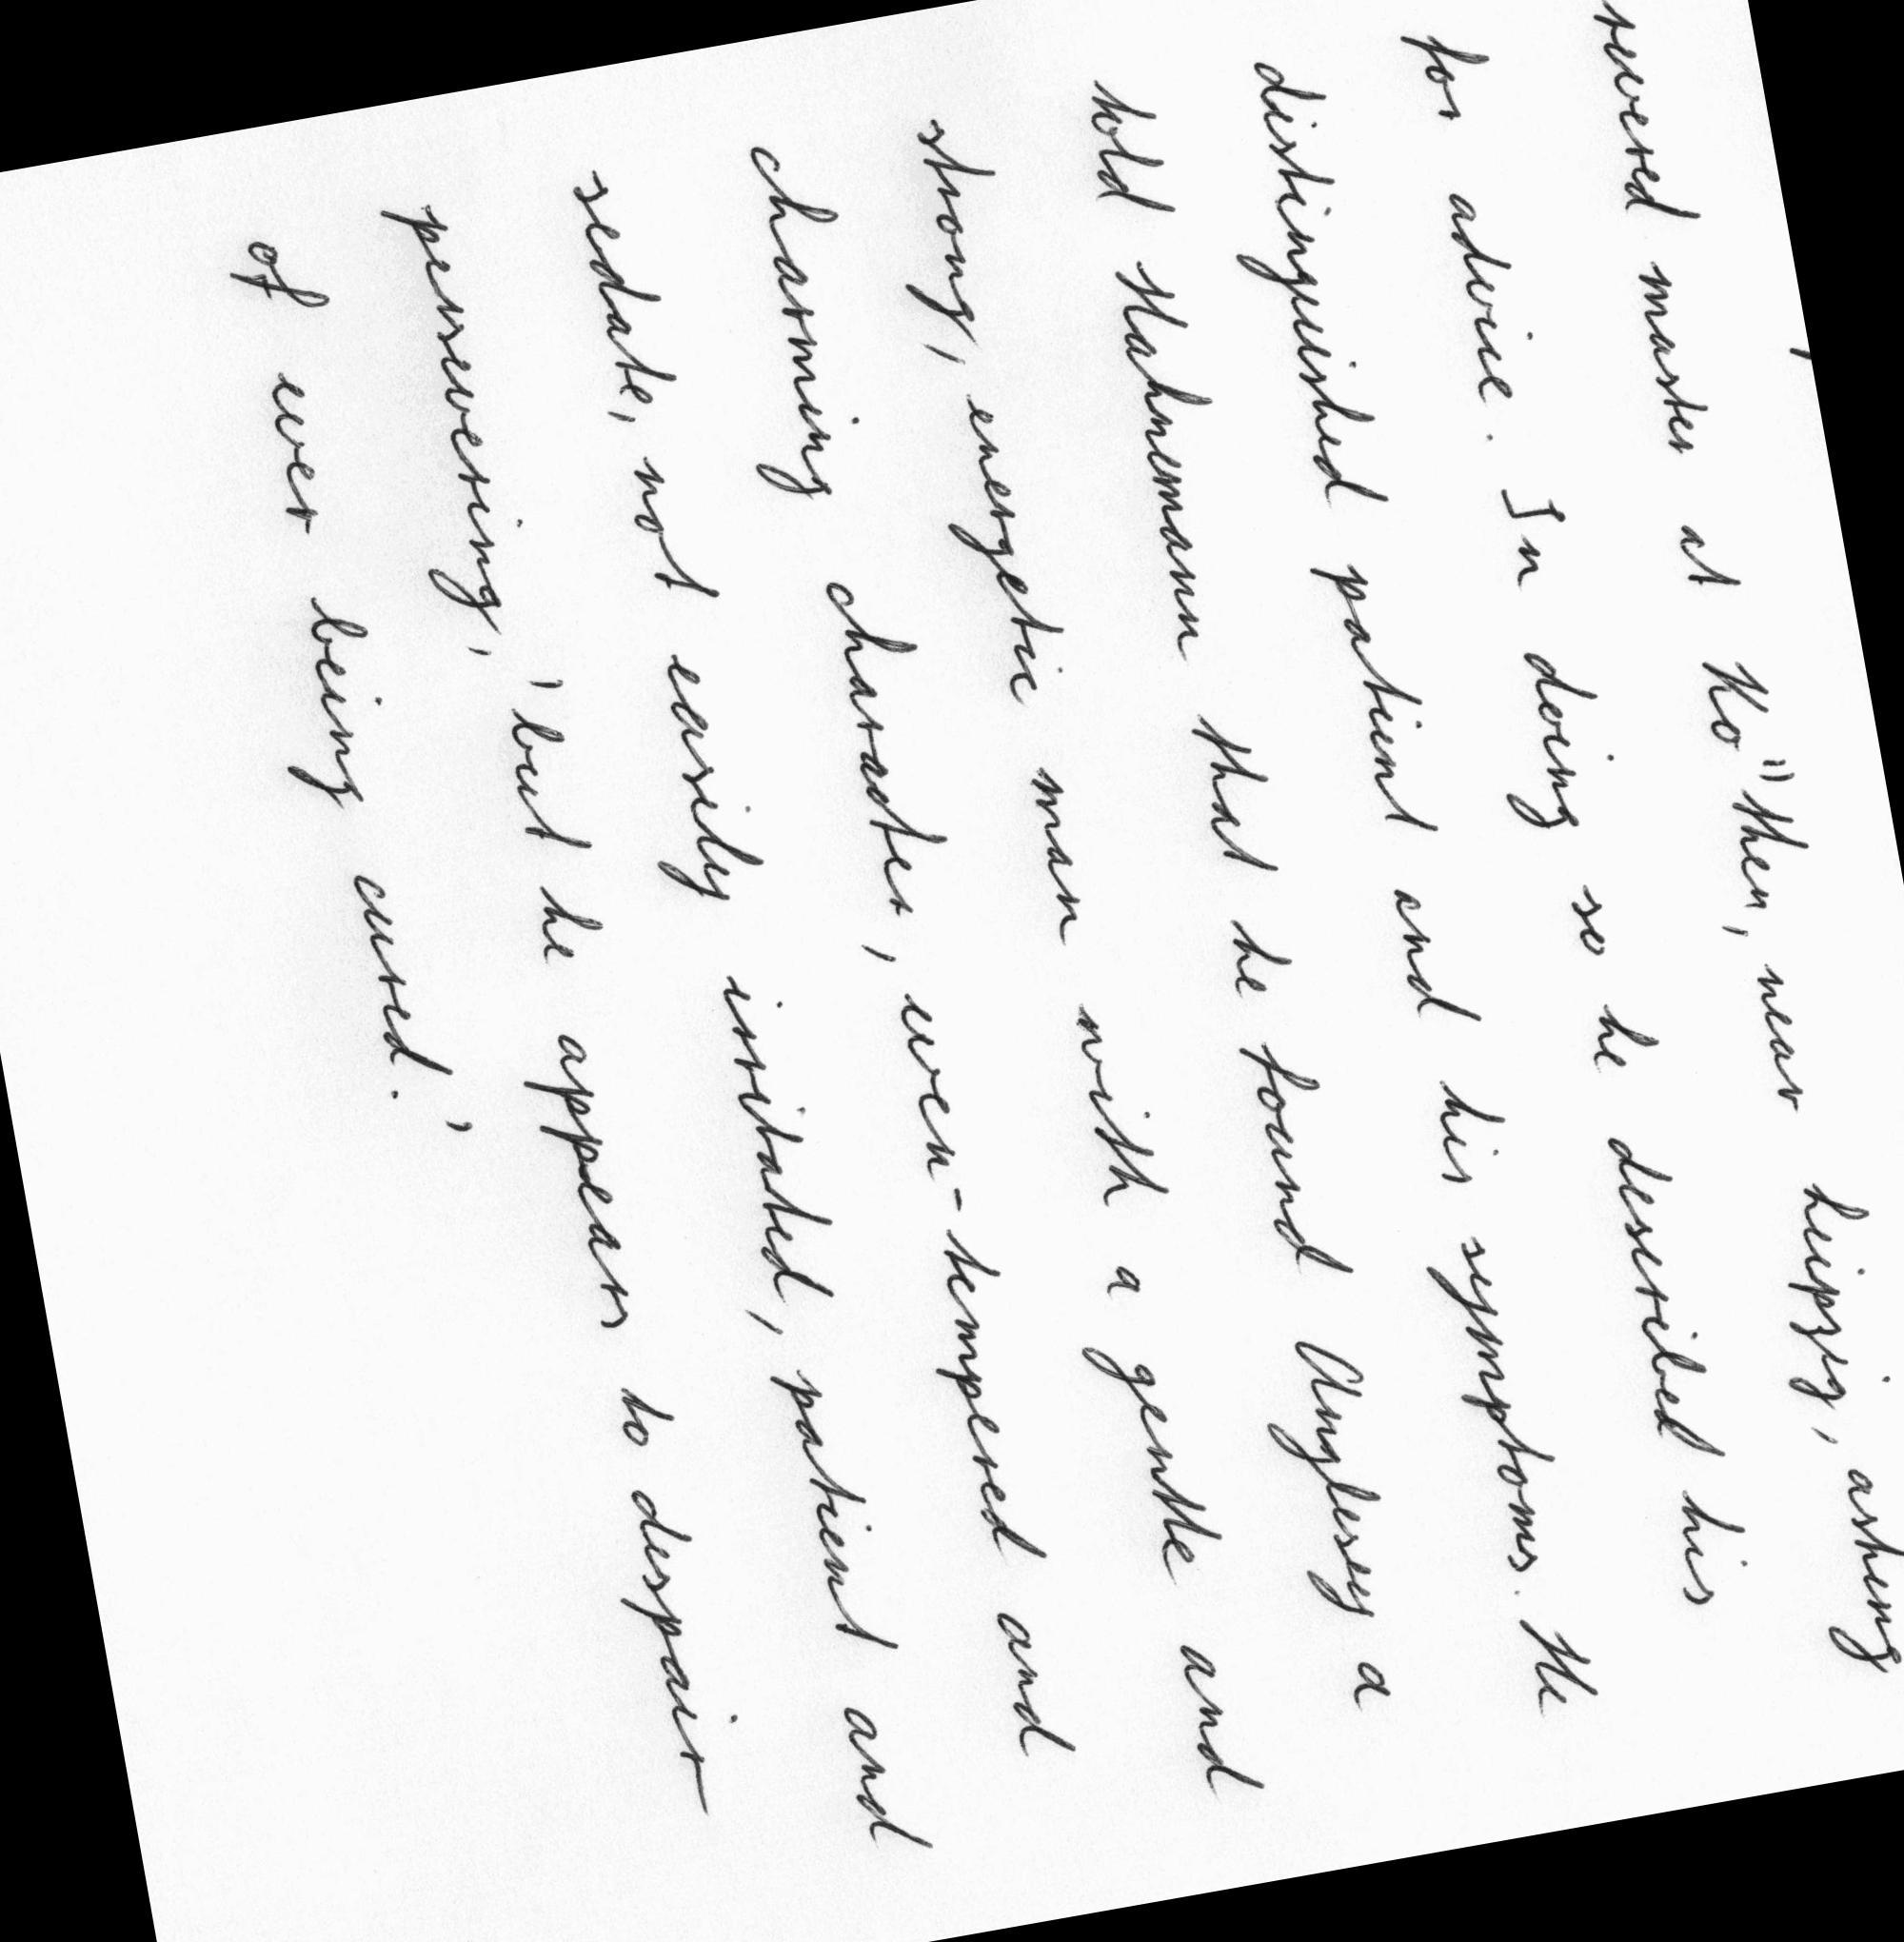 revered master at Kö then, near Leipzig, asking
for advice. In doing so he described his
distinguished patient and his symptoms. He
told Hahnemann that he found Anglesey a
strong, energetic man with a gentle and
charming character, even-tempered and
sedate, not easily irritated, patient and
persevering, 'but he appears to despair
of ever being cured.'